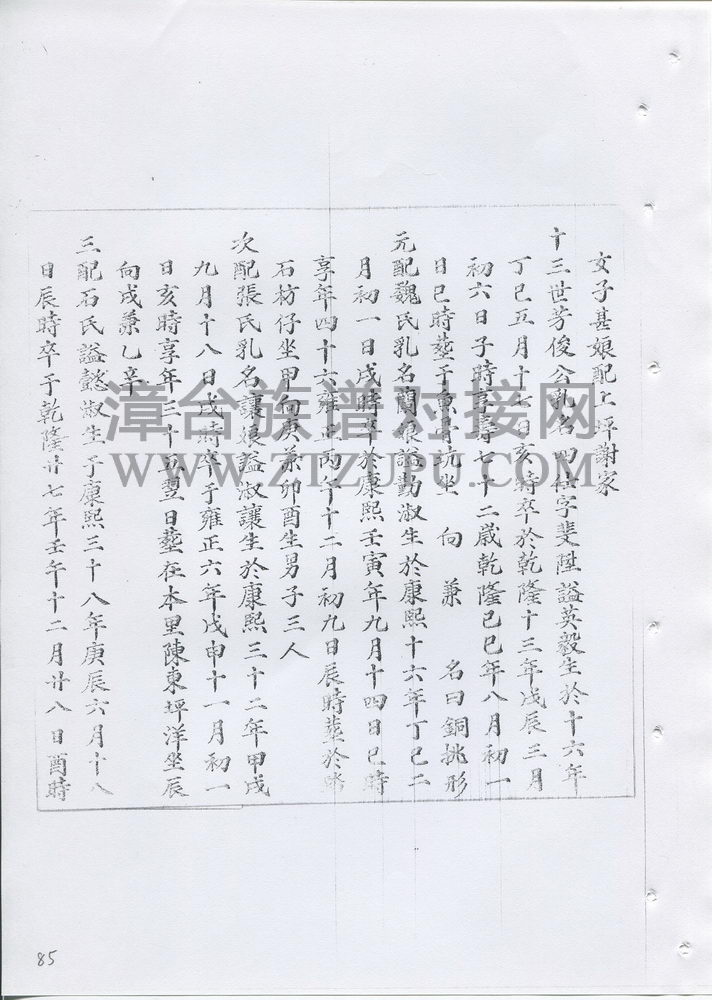 女子甚娘配上坪謝家
十三世芳俊公乳名四仕字斐陞謚英毅生於十六年
丁巳五月十七日亥時卒於乾隆十三年戊辰三月
初六日子時享壽七十二歲乾隆己巳年八月初一
日巳時塟于魚骨坑坐 向 兼 名曰銅挑形
元配魏氏乳名蘭娘謚勤淑生於康熙十六年丁巳二
月初一日戌時卒於康熙壬寅年九月十四日巳時
享年四十六雍正丙午十二月初九日辰時塟於
石枋仔坐甲向庚兼卯酉生男子三人
次配張氏乳名讓娘謚淑讓生於康熙三十二年甲戌
九月十八日戌時卒于雍正六年戊申十一月初一
日亥時享年三十五翌日塟在本里陳東坪洋坐辰
向戌兼乙辛
三配石氏謚懿淑生于康熙三十八年庚辰六月十八
日辰時卒于乾隆廿七年壬午十二月廿八日酉時
漳台族谱对接网
WWW.ZTZUPU.COM
85